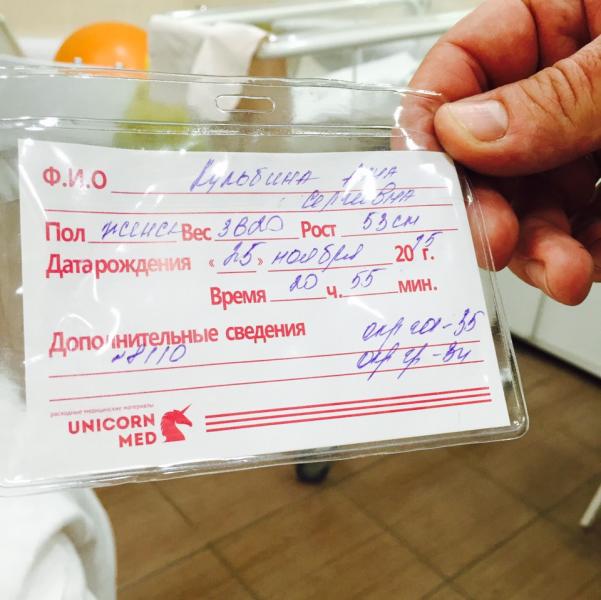 Ф.И.О Кульбина Анна
Сергеевна
Пол женск Вес 3820 Рост 53см
Дата рождения «25» ноября 2015 г.
Время 20 ч. 55 мин.
Дополнительные сведения окр гол-35
№8110 окр гр-34
расходные медицинские материалы
UNICORN
MED